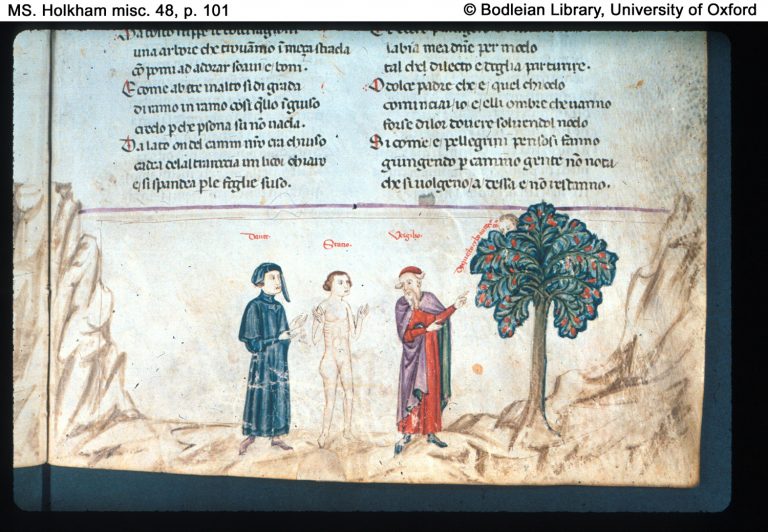 MS. Holkham misc. 48, p. 101
© Bodleian Library, University of Oxford
una arbore che trouāmo ī meça strada
cō pomi ad adorar soaui e boni.
E come abete inalto si di grada
di ramo in ramo cosi q̄llo īgiuso
credo p che psona su nō uada.
Da lato on del camin nrō era chiuso
cadea de lal ta roccia un licor chiaro
e si spandea p le foglie suso.
labia mea dne per modo
tal chel dilecto e doglia parturire.
O dolce padre che e quel chi odo
cominciai io e elli ombre che uanno
forse di lor douere soluendol nodo
Si come e pellegrini pensosi fanno
giungendo p camino gente nō nota
che si uolgeno a dessa e nō restanno.
Dante.
Statio.
Virgilio.